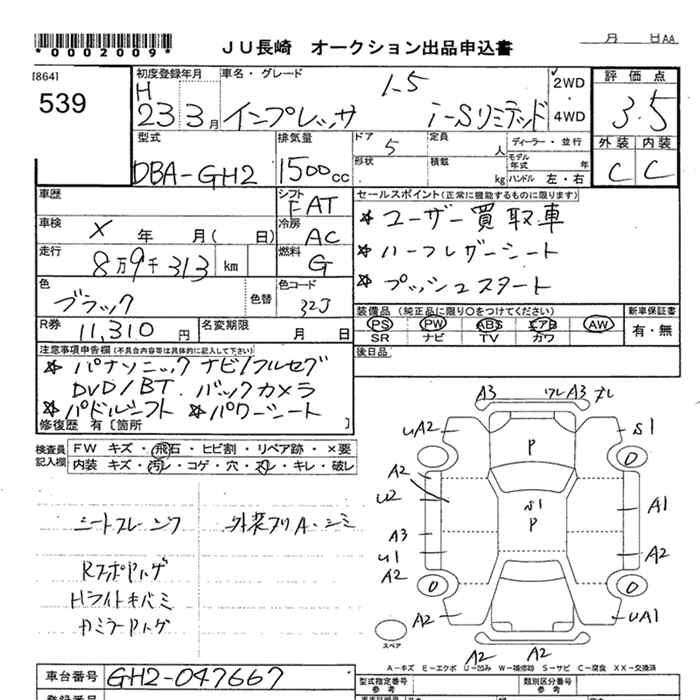 *0002009*
ＪＵ長崎 オークション出品申込書
月 日AA
[864]
539
初度登録年月
H
23 3月
車名・グレード
1.5
インプレッサ i-Sリミテッド
2WD
・
4WD
評価点
3.5
外装 内装
C C
型式
DBA-GH2
排気量
1500cc
ドア
5
定員
人
形状
積載
kg
ディーラー・並行
モデル年式 年
ハンドル 左・右
車歴
シフト
FAT
車検 X 年 月( 日)
冷房
AC
走行 8万9千313 km
燃料
G
色
ブラック
色替
色コード
32J
R券 11,310円
名変期限 月 日
セールスポイント(正常に機能するものに限ります)
☆ユーザー買取車
☆ハーフレザーシート
☆プッシュスタート
装備品 (純正品に限り○をつけてください)
PS PW ABS エアB AW
SR ナビ TV カワ
新車保証書
有・無
後日品
注意事項申告欄(不具合内容等は具体的に記入して下さい)
☆パナソニック ナビ/フルセグ
DVD/BT. バックカメラ
☆パドルシフト ☆パワーシート
修復歴 有[箇所 ]
検査員記入欄
FW キズ・飛石・ヒビ割・リペア跡・×要
内装 キズ・汚レ・コゲ・穴・スレ・キレ・破レ
外装フリA・シミ
Hライトキバミ
A3 A3
UA2 S1
P
A2
U2
S1
P
A1
A3
U1
A2
A2
A2 UA1
スペア
A2 A2
A－キズ E－エクボ U－凹み W－補修跡 S－サビ C－腐食 XX－交換済
車台番号 GH2-047667
型式指定番号
参考
類別区分番号
参考